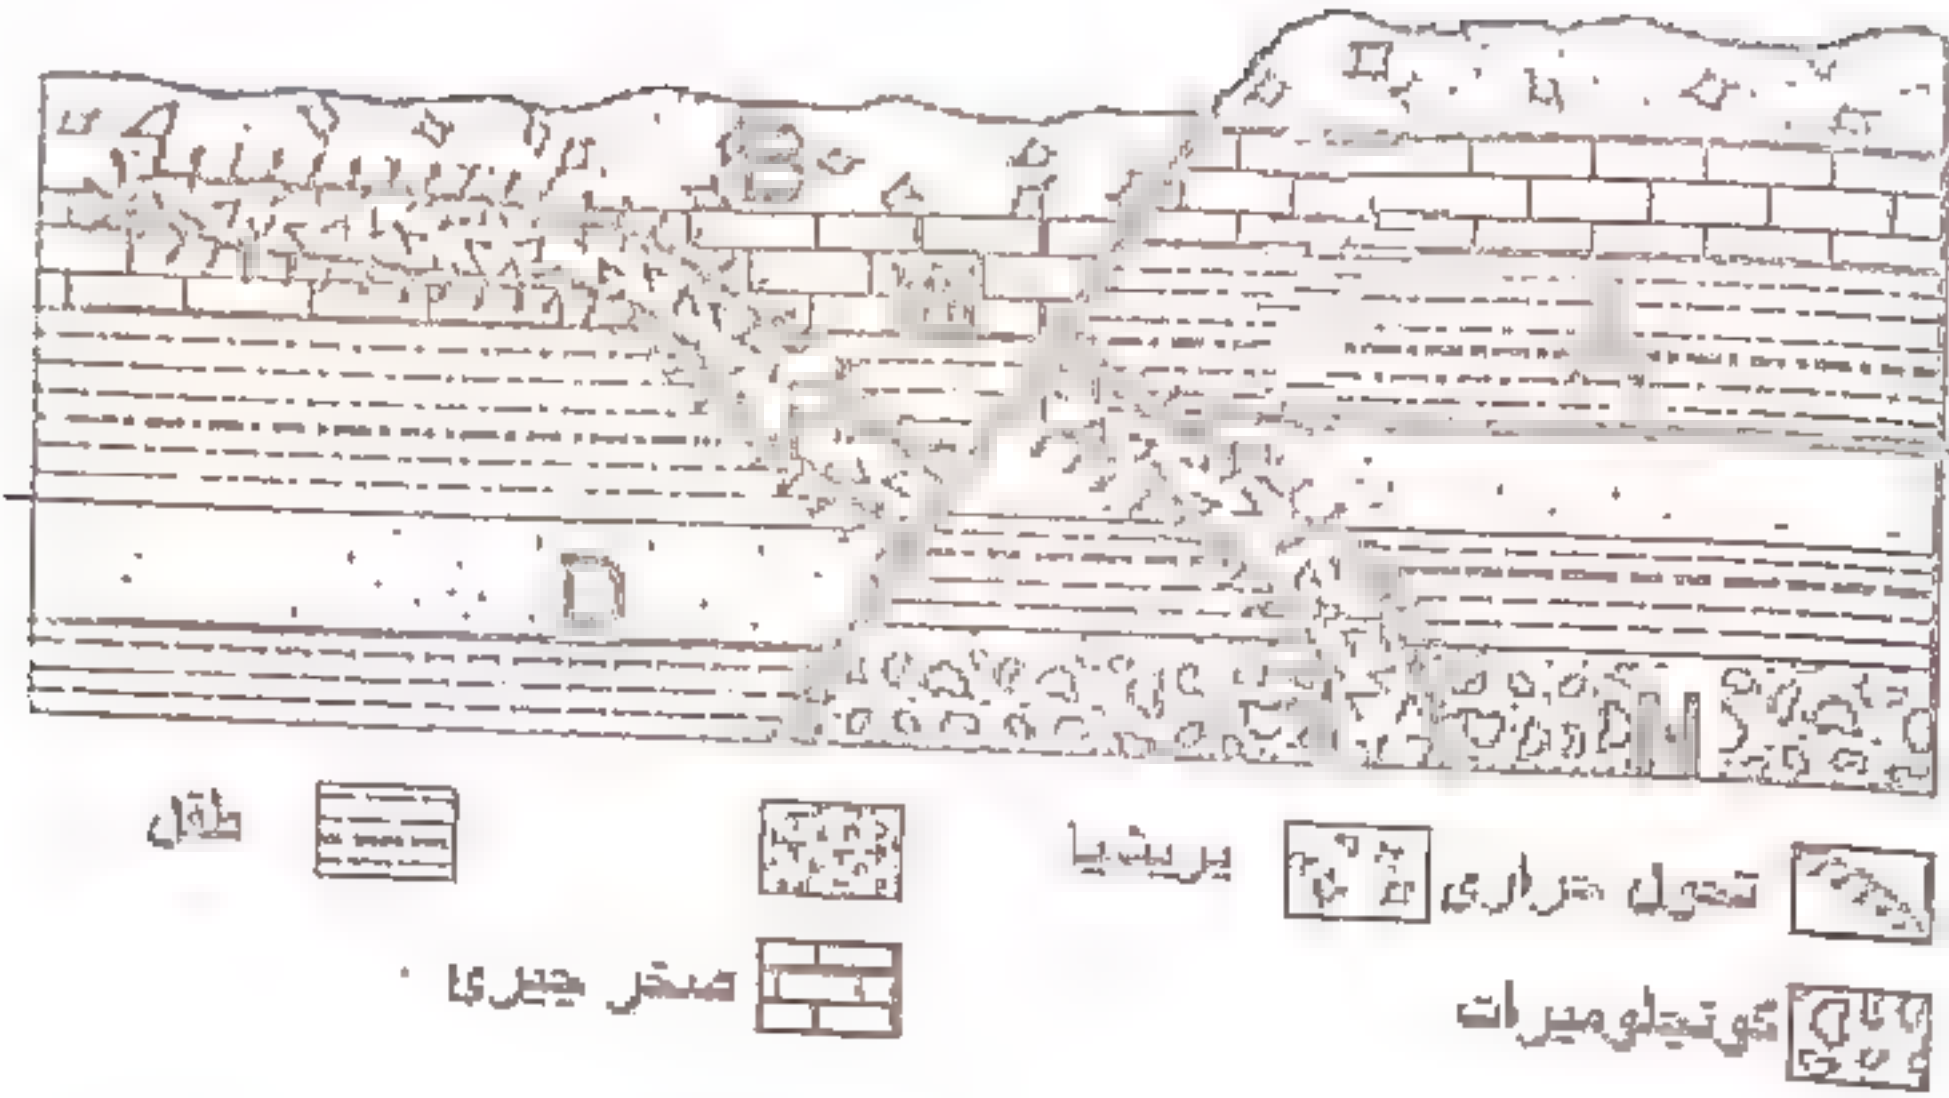 B
D
M
تحول حرارى
بريشيا
طفل
كونجلوميرات
صخر جيرى